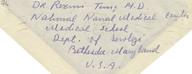 Dr Rosmi Tung, M.D.
National Naval Medical Center
Medical School
Dept. of Biology
Bethesda Maryland
U.S.A.